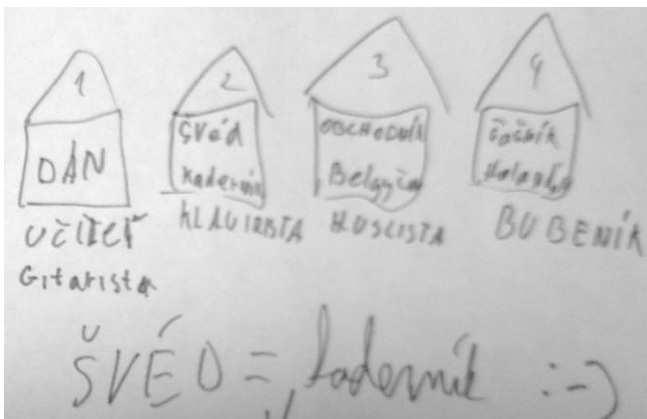 1 2 3 4
DÁN
UČITEĽ
Gitarista
Švéd
Kaderník
KLAVIRISTA
OBCHODNÍK
Belgičan
HUSLISTA
čašník
Holanďan
BUBENÍK
ŠVÉD = kaderník :-)